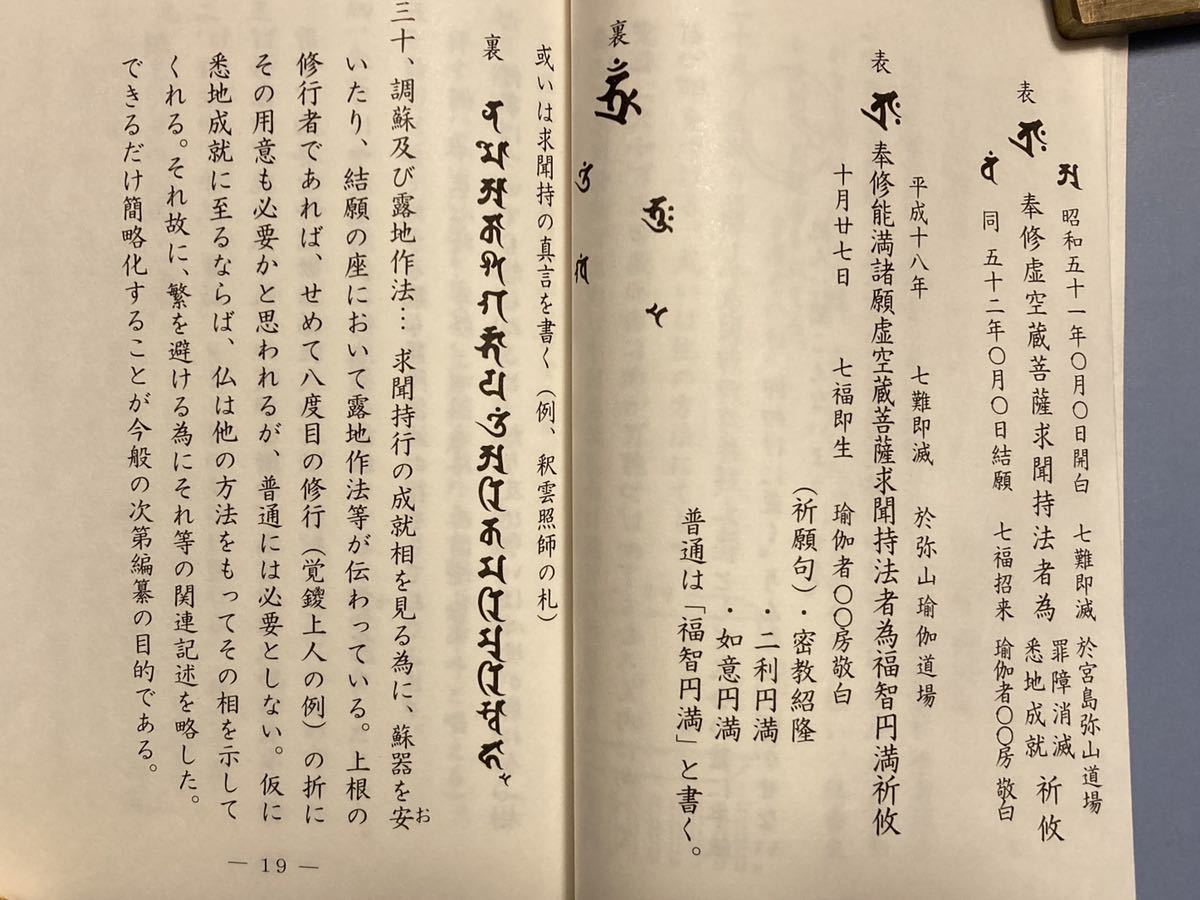 表
昭和五十一年〇月〇日開白　七難即滅　於宮島弥山道場
奉修虚空蔵菩薩求聞持法者為　罪障消滅　悉地成就　祈攸
同　五十二年〇月〇日結願　七福招来　瑜伽者〇〇房　敬白
表
平成十八年　七難即滅　於弥山瑜伽道場
奉修能満諸願虚空蔵菩薩求聞持法者為福智円満祈攸
十月廿七日　七福即生　瑜伽者〇〇房敬白
（祈願句）・密教紹隆
・二利円満
・如意円満
普通は「福智円満」と書く。
裏
或いは求聞持の真言を書く（例、釈雲照師の札）
裏
三十、調蘇及び露地作法… 求聞持行の成就相を見る為に、蘇器を安お
いたり、結願の座において露地作法等が伝わっている。上根の
修行者であれば、せめて八度目の修行（覚鑁上人の例）の折に
その用意も必要かと思われるが、普通には必要としない。仮に
悉地成就に至るならば、仏は他の方法をもってその相を示して
くれる。それ故に、繁を避ける為にそれ等の関連記述を略した。
できるだけ簡略化することが今般の次第編纂の目的である。
— 19 —